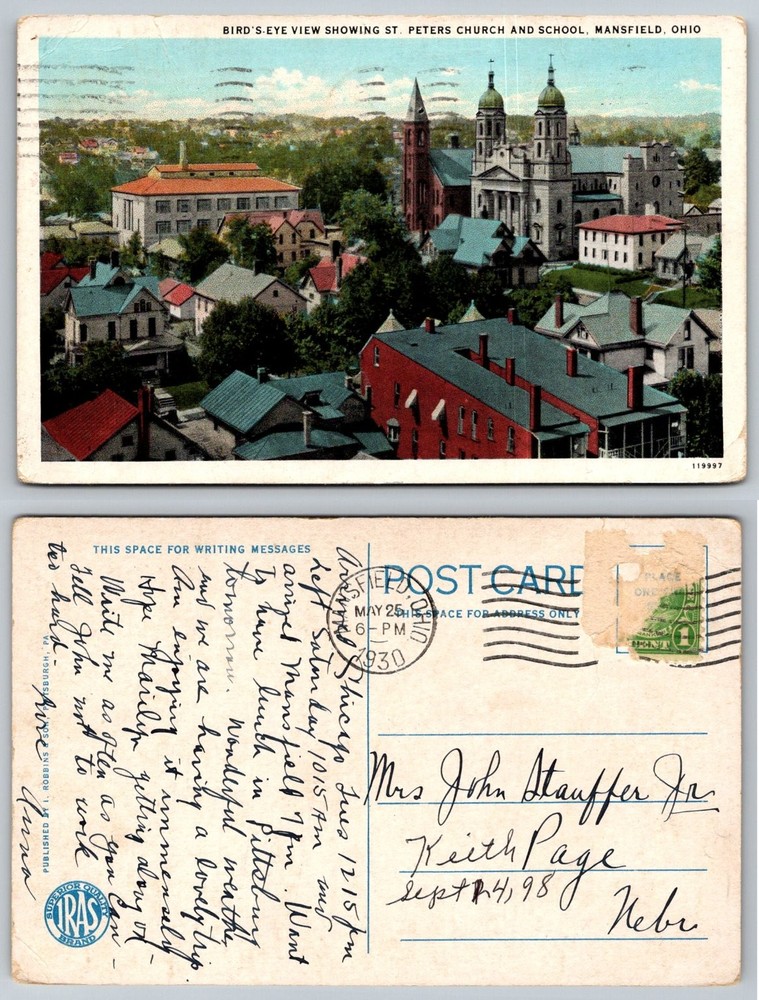 BIRD'S-EYE VIEW SHOWING ST. PETERS CHURCH AND SCHOOL, MANSFIELD, OHIO
119997
THIS SPACE FOR WRITING MESSAGES
Arrived Chicago Tues 12 15 pm
Left Saturday 10 15 Am and
arrived Mansfield 9 pm. Want
To have lunch in Pittsburg
tomorrow. Wonderful weather
and we are having a lovely trip.
Am enjoying it immensely
Hope Marilyn getting along OK
Write me as often as you can -
Tell John not to work
too hard.
Love
Anna
PUBLISHED BY I. ROBBINS & SON, PITTSBURGH, PA.
SUPERIOR QUALITY
IRAS
BRAND
POST CARD
THIS SPACE FOR ADDRESS ONLY
MANSFIELD, OHIO
MAY 25
6-PM
1930
PLACE
ONE
1
Mrs John Stauffer Jr.
Keith Page
Sept 14, 98
Nebr